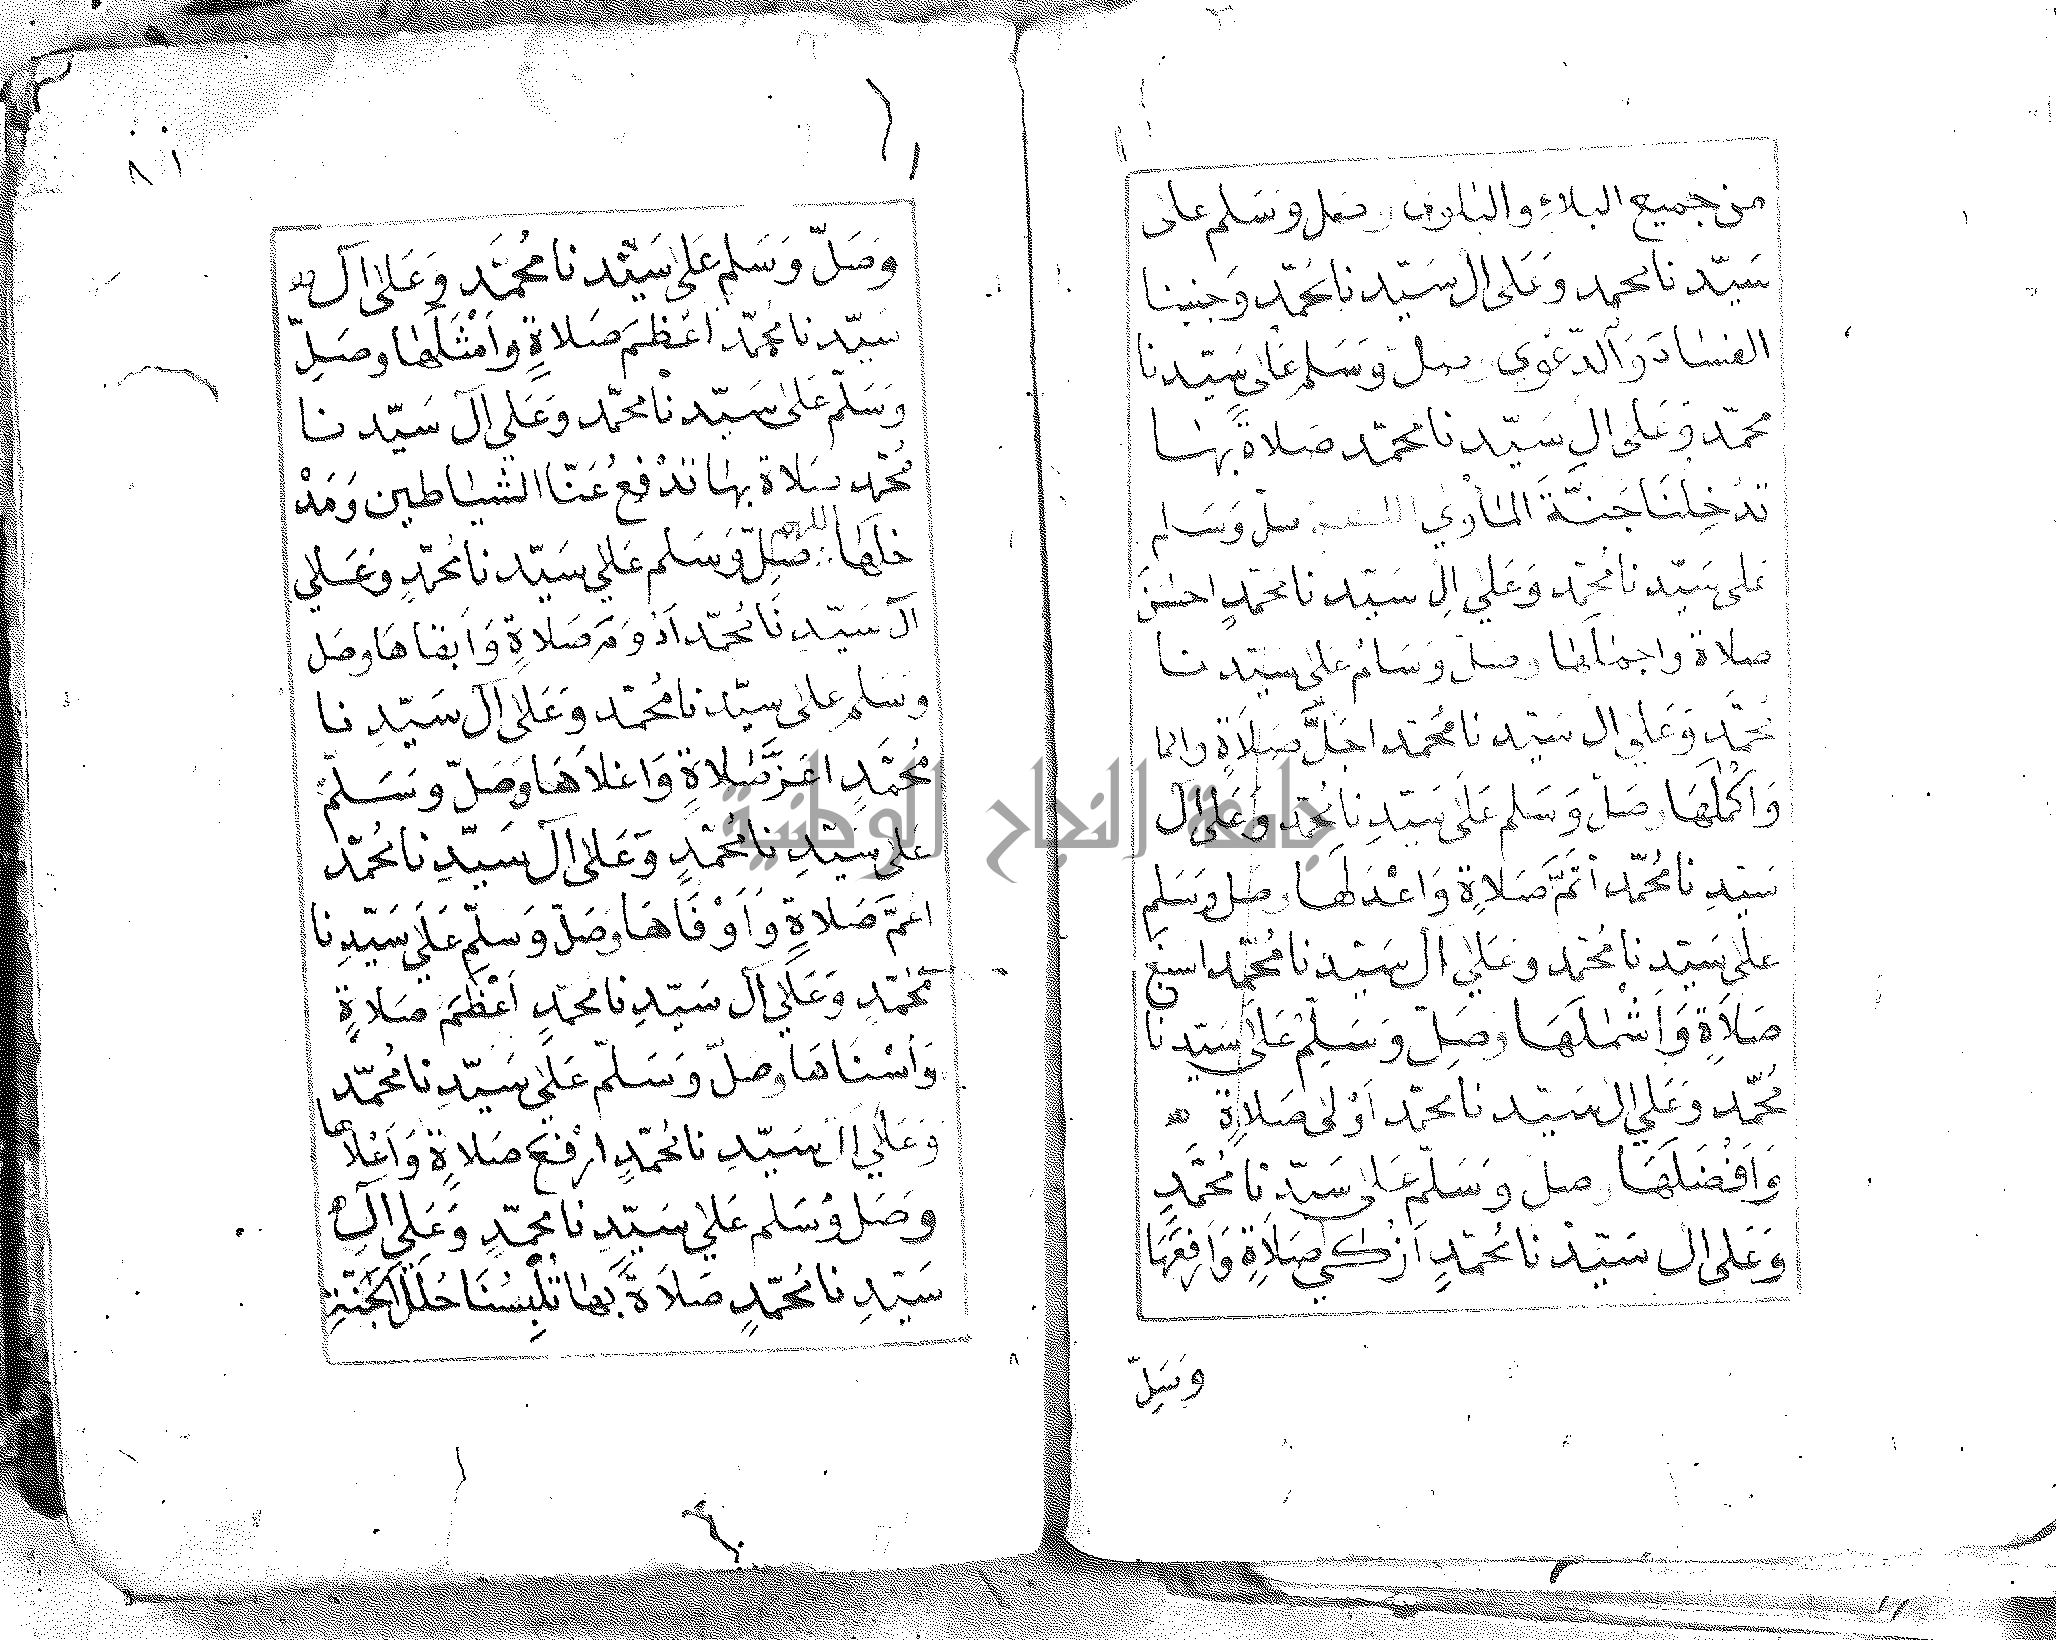 من جميع البلاء والبلوى وصل وسلم على
سَيّدنا محمد وَعَلى ال سَيّدنا محَمّد وَجنبنا
الفسَاد وَالدّعْوي وصل وَسَلم عَلى سَيّدنا
محمّد وَعَلى الِ سَيّدنا محمّد صَلاةً بهَا
تدْخِلنَا جَنّةَ المأوي اللهم صل وَسَلم
عَلى سَيّدنا محُمّد وَعَليٰ الِ سَيّدنا محمّدٍ احسَنَ
صَلاة واجملها وصَل وَسَلم عَلىٰ سَيّدنا
محُمّد وَعَلىٰ ال سَيّدنا محُمّد اجَلَّ صَلاَةٍ
وَاكْمَلَهَا وصَلّ وَسَلم عَلىَ سَيّدِنا محُمّد وَعَلىٰ آل
سَيّدِنا محُمّد اتَمَّ صَلاةٍ وَاعْدَلَهَا وصل وسَلم
عَلىٰ سَيّدنا محُمّد وعَليٰ ال سَيّدنا محُمّد اسبَغ
صَلاَةٍ وَاَشْمَلَهَا وصَلِّ وَسَلِّم عَلىَ سَيّدنا
محُمّد وَعَلي ال سَيّدنا محمّد اَوْلى صَلاةٍ
وَافْضَلَهَا وصل وَسَلّم عَلى سَيّدنا محُمَّدٍ
وَعَلى ال سَيّدنا محُمّدٍ اَزْكى صَلاَةٍ وَارفعَهَا
وَصَلِّ
وَصَلّ وَسَلم عَلىٰ سَيّدنا محُمَّد وَعَلىٰ ال
سَيّدنا محُمّد اعْظمَ صَلاةٍ وَامْثَلَهَا وصَلِّ
وَسَلّم عَلىٰ سَيّدنا محمّد وَعَلي ال سَيّدنا
محُمّد صَلاة بهَا تدْفع عَنّا الشيَاطين وَمَدْ
خلَهَا اللهم صَلِّ وَسَلم عَليٰ سَيّدنا محُمّدٍ وَعَلي
آل سَيّدِنَا محُمّد اَدْوَمَ صَلاةٍ وَابقاهَا وصَل
وسَلم عَلىٰ سَيّدنا محُمّد وَعَلىٰ آل سَيّدِنا
محُمَّدٍ اعَزَّ صَلاةٍ وَاعْلاَهَا وَصَلّ وسَلّمْ
عَلىٰ سَيّدِنا محُمّدٍ وَعَلىٰ آل سَيّدِنا محُمّد
اعمَّ صَلاةٍ وَاَوْفَاهَا وصَلّ وَسَلّم عَلَىٰ سَيّدِنا
محُمّدٍ وَعَلَىٰ آل سَيّدِنا محمّدٍ اَعْظمَ صَلاةٍ
وَاسْنَاهَا وصَلّ وَسَلّم عَلىٰ سَيّدِنا محُمّد
وَعَلىٰ ال سَيّدِنا محُمّدٍ ارْفعَ صَلاةٍ وَاَعْلاَها
وَصَل وَسَلم عَلىٰ سَيّدِنا محمّدٍ وَعَلي الِ
سَيّدِنا محُمّدٍ صَلاَةً بهَا تُلْبِسُنَا حُلَل الجَنّةِ
جامعة النجاح الوطنية